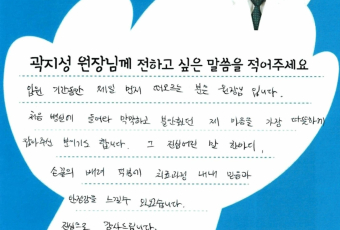 곽지성 원장님께 전하고 싶은 말씀을 적어주세요
입원 기간동안 제일 먼저 떠오르는 분은 원장님 입니다.
처음 병원에 들어와 막막하고 불안했던 제 마음을 가장 따뜻하게
잡아주신 분이기도 합니다. 그 진심어린 말 한마디,
손끝의 배려 덕분에 치료과정 내내 믿음과
안정감을 느낄수 있었습니다.
진심으로 감사드립니다.